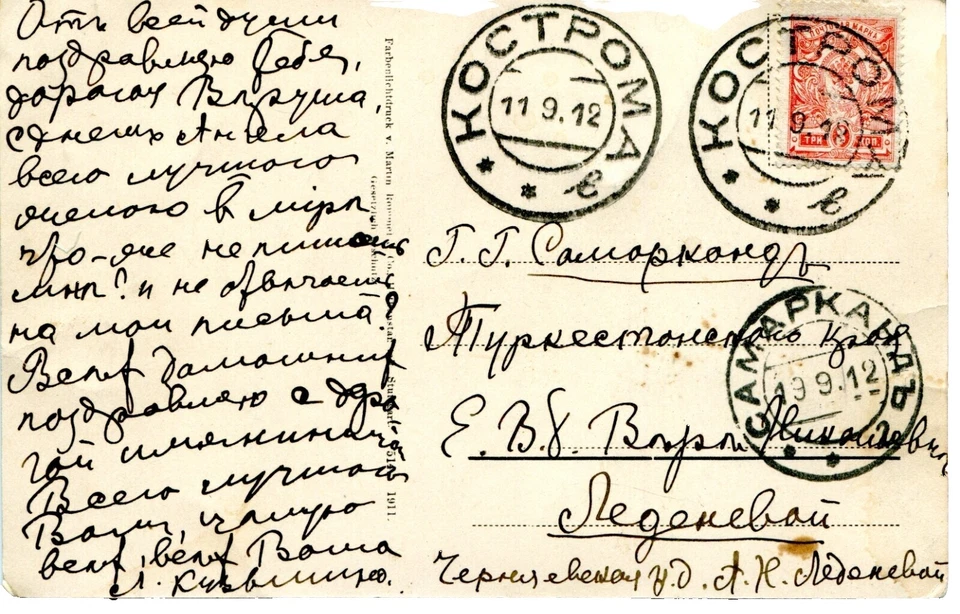 Отъ всей души
поздравляю тебя,
дорогая Вѣруша,
съ днемъ Ангела
всего лучшаго
желаю в мірѣ
что-же не пишешь
мнѣ? и не отвѣчаешь
на мои письма?
Всѣхъ домашних
поздравляю с доро
гой имянинницей
Всего лучшаго
Вамъ, цѣлую
всѣхъ, всѣхъ Ваша
Л. Кузьмина.
Farbenlichtdruck v. Martin
1911.
КОСТРОМА
11 9.12
в
КОСТРОМА
11 9.12
в
ПОЧТОВАЯ МАРКА
ТРИ 3 КОП.
Г. Г. Самаркандъ
Туркестанского края
САМАРКАНДЪ
19 9.12
Е. В. б. Вѣрѣ Николаевнѣ
Леденевой
Черняевская у. д. А. Н. Леденевой